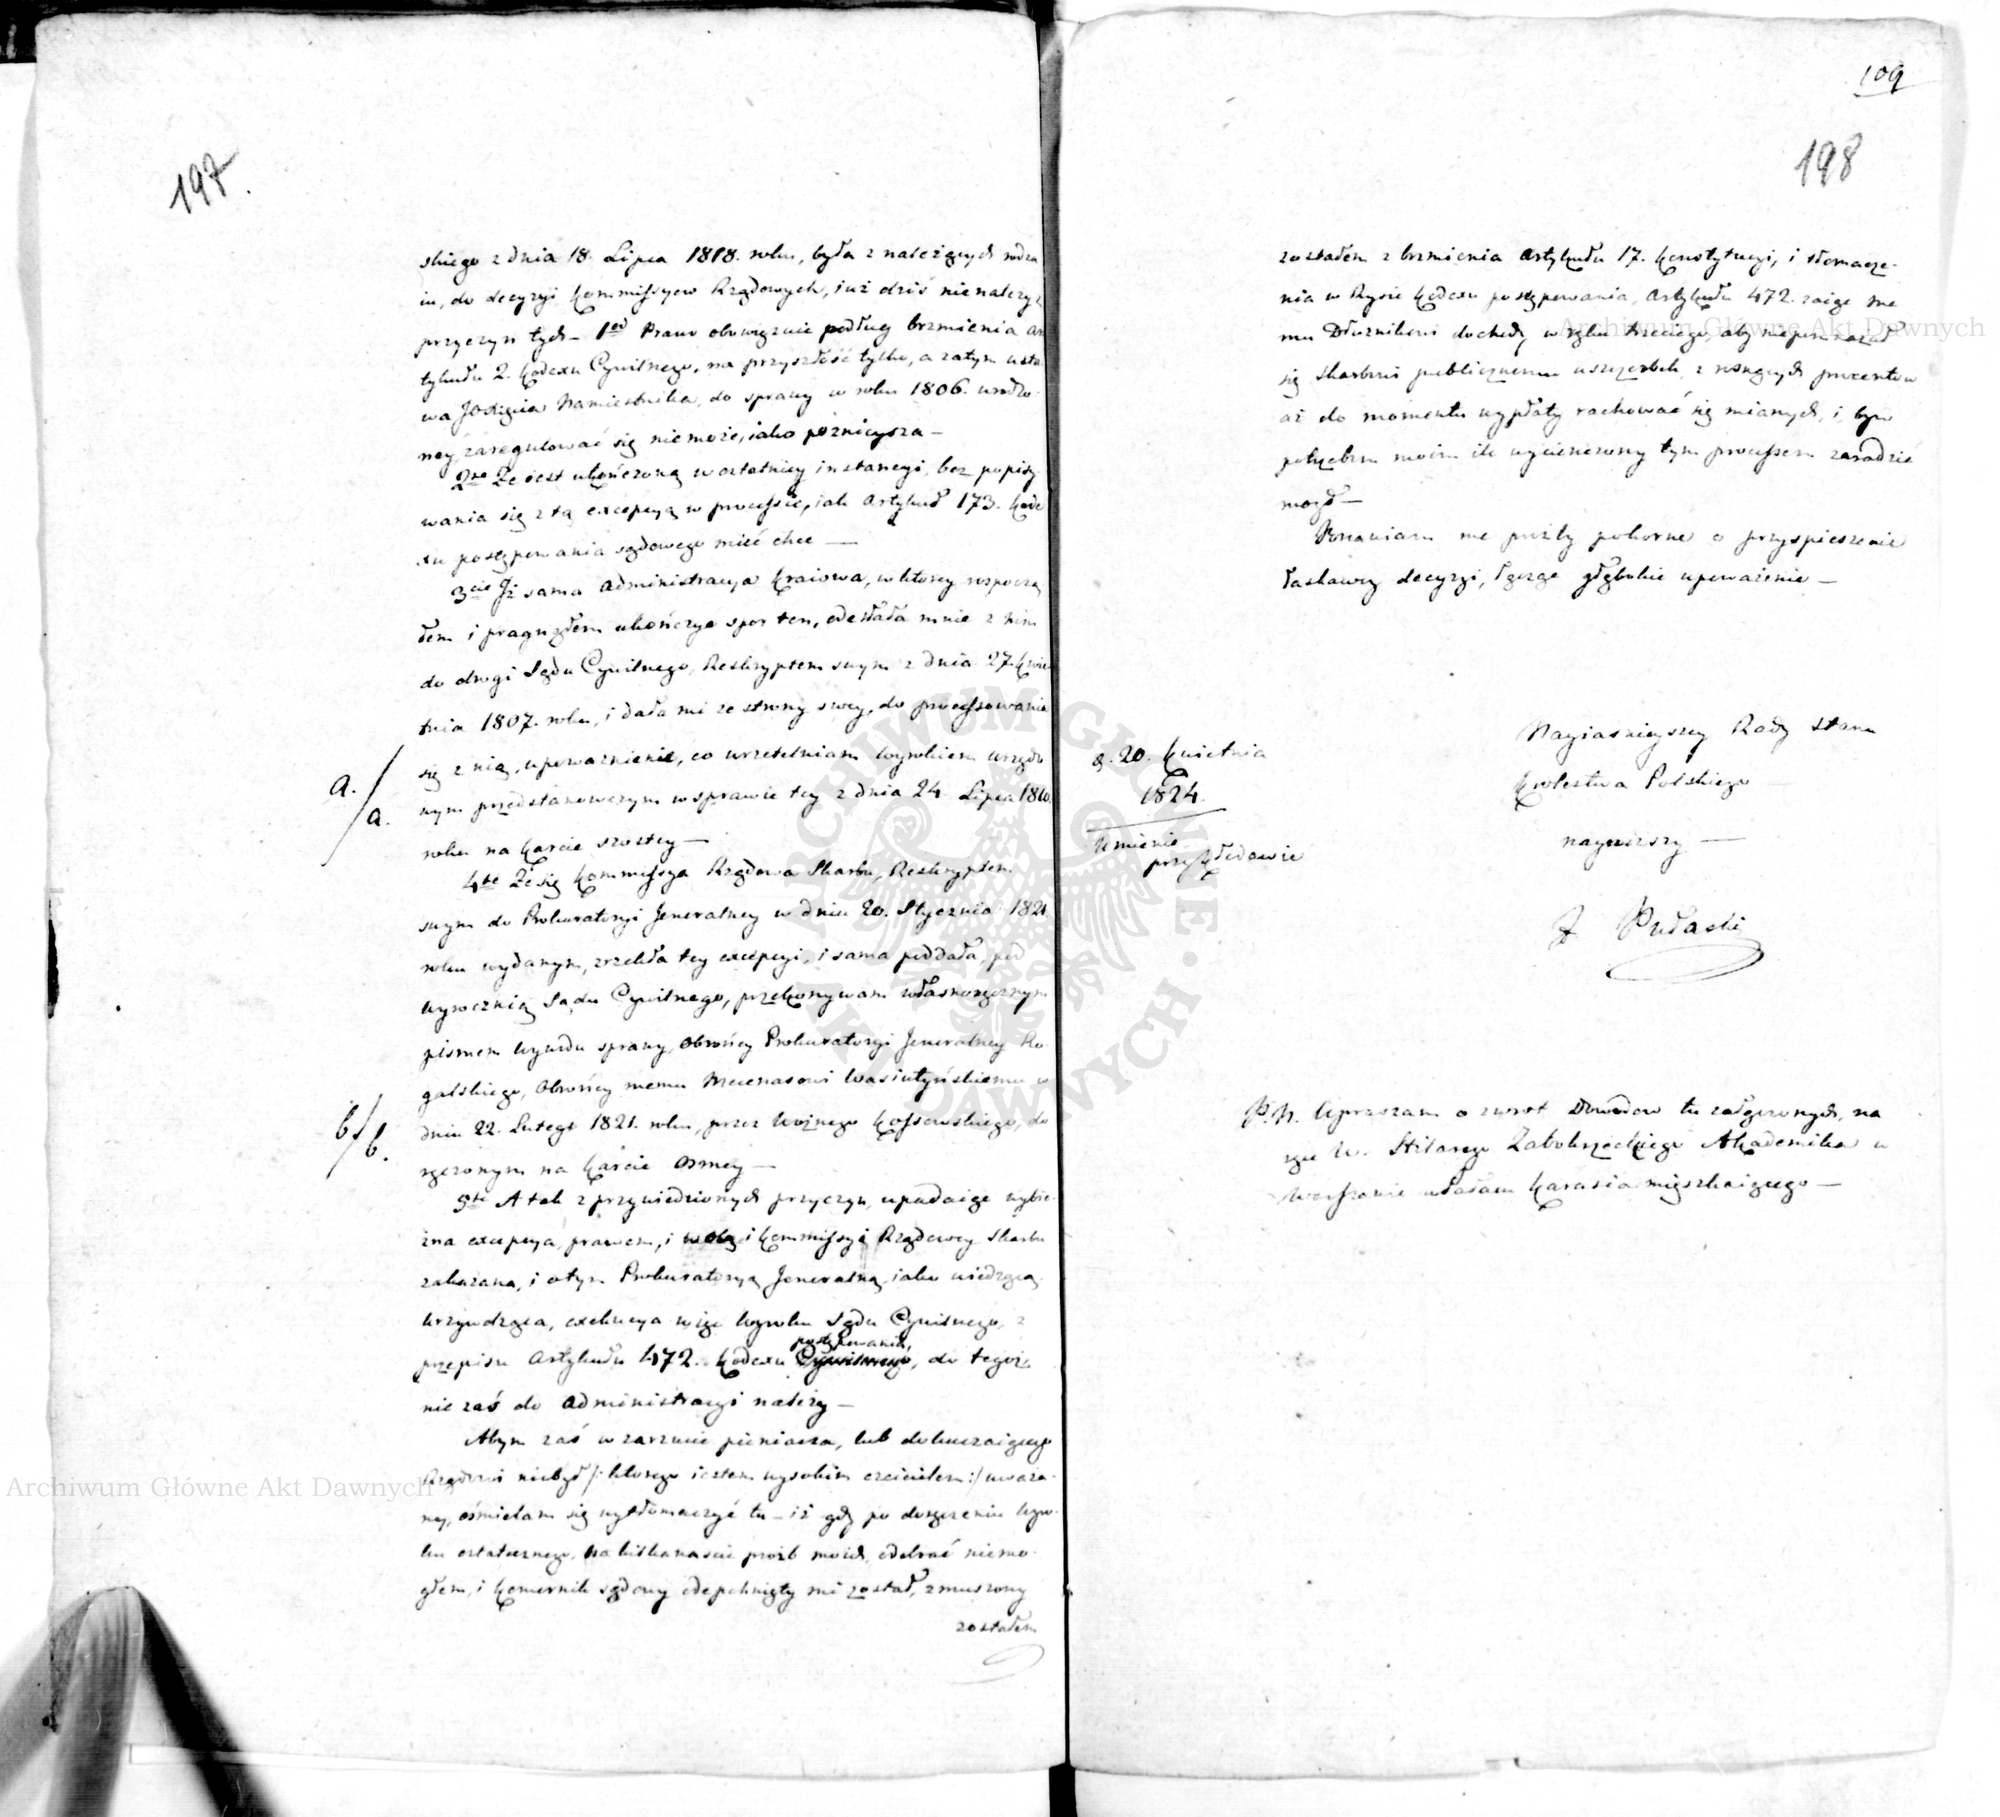 197.
skiego z dnia 18. Lipca 1818. roku, była z należących rodza
iu, do decyzyi Kommissyow Rządowych, iuż dziś nienależy z
przyczyn tych – 1od Prawo obowiązuie podług brzmienia ar
tykułu 2. Kodexu Cywilnego, na przyszłość tylko, a zatym usta
wa JOXięcia Namiestnika, do sprawy w roku 1806. urodzo-
ney, zaregulować się niemoże, iako póznieysza –
2re Że iest ukończoną w ostatniey instancyi, bez popisy
wania się z tą excepcyą w processie, iak Artykuł 173. Kode
xu postępowania sądowego mieć chce —
3cie Iż sama Administracya Kraiowa, w ktorey rozpoczą
łem i pragnąłem ukończyć spor ten, odesłała mnie z nim
do drogi Sądu Cywilnego, Reskryptem swym z dnia 27. Kwie
tnia 1807. roku, i dała mi ze strony swey, do processowania
się z nią, upoważnienie, co urzetelniam Wyrokiem urzędo
wym przedstanowczym w sprawie tey z dnia 24. Lipca 1810.
a./a.
roku na karcie szostey —
4te Że się Kommissya Rządowa Skarbu, Reskryptem
swym do Prokuratoryi Jeneralney w dniu 20. Stycznia 1821
roku wydanym, zrzekła tey excepcyi, i sama poddała, pod
wyrocznią Sądu Cywilnego, przekonywam własnoręcznym
pismem wywodu sprawy, Obrońcy Prokuratoryi Jeneralney Ro-
galskiego, Obrońcy memu Mecenasowi Wasiutyńskiemu w
dniu 22. Lutego 1821. roku, przez Woźnego Kossowskiego, do
b./b.
ręczonym na karcie Osmey —
5te A tak z przywiedzionych przyczyn, upadaiąc wybie-
zna excepcya, prawem, i wolą i Kommissyi Rządowey Skarbu
zakazana, i otym Prokuratoryą Jeneralną, iako wiedzącą
krzywdząca, exekucya więc Wyroku Sądu Cywilnego, z
postępowania,
przepisu Artykułu 472. Kodexu Cywilnego, do tegoż
nie zaś do Administracyi należy —
Abym zaś w zarzucie pieniacza, lub dokuczaiącego
Rządowi niebył /: ktorego iestem wysokim czcicielem :/ uważa-
ny, ośmielam się wytłomaczyć tu – iż gdy po doręczeniu Wyro-
ku ostatecznego, na kilkanaście prośb moich, odebrać niemo-
głem, i Komornik sądowy odepchnięty mi został, zmuszony
zostałem
109
198
zostałem z brzmienia Artykułu 17. Konstytucyi, i tłomacze-
nia w Rysie Kodexu postępowania, Artykułu 472. zaiąć me
mu Dłużnikowi dochody, w ręku trzeciego, aby niepomnażał
się Skarbowi publicznemu uszczerbek, z rosnących procentow
aż do momentu wypłaty rachować się mianych, i bym
potrzebom moim ile wycieńczony tym processem zaradzić
mogł —
Ponawiam me prośby pokorne o przyspieszenie
łaskawey decyzyi, łącząc głębokie upoważenie —
d. 20. Kwietnia
1824.
Nayiaśnieyszey Rady Stanu
Krolestwa Polskiego
naywierszy —
J. Pułaski
P.N. Upraszam o zwrot Dowodow tu załączonych, na
ręce W. Hilarego Zabokrzeckiego Akademika w
Warszawie w Pałacu Karasia mięszkaiącego —
Archiwum Główne Akt Dawnych
Archiwum Główne Akt Dawnych
ARCHIWUM GŁÓWNE AKT DAWNYCH